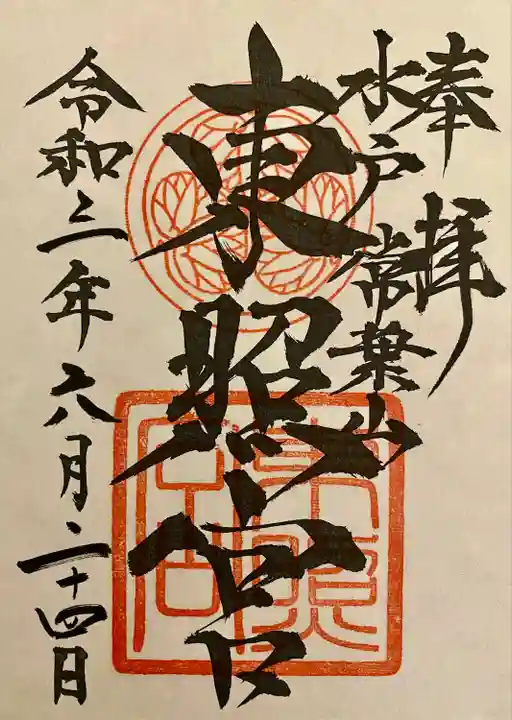 奉拝
水戸 常葉山
東照宮
令和三年六月二十四日